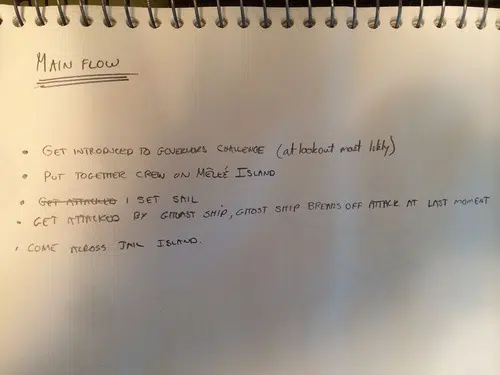 MAIN FLOW
• GET INTRODUCED TO GOVERNORS CHALLENGE (at lookout most likly)
• PUT TOGETHER CREW ON MÊLÉE ISLAND
• GET ATTACKED I SET SAIL
• GET ATTACKED BY GHOST SHIP, GHOST SHIP BREAKS OFF ATTACK AT LAST MOMENT
• COME ACROSS JAIL ISLAND.